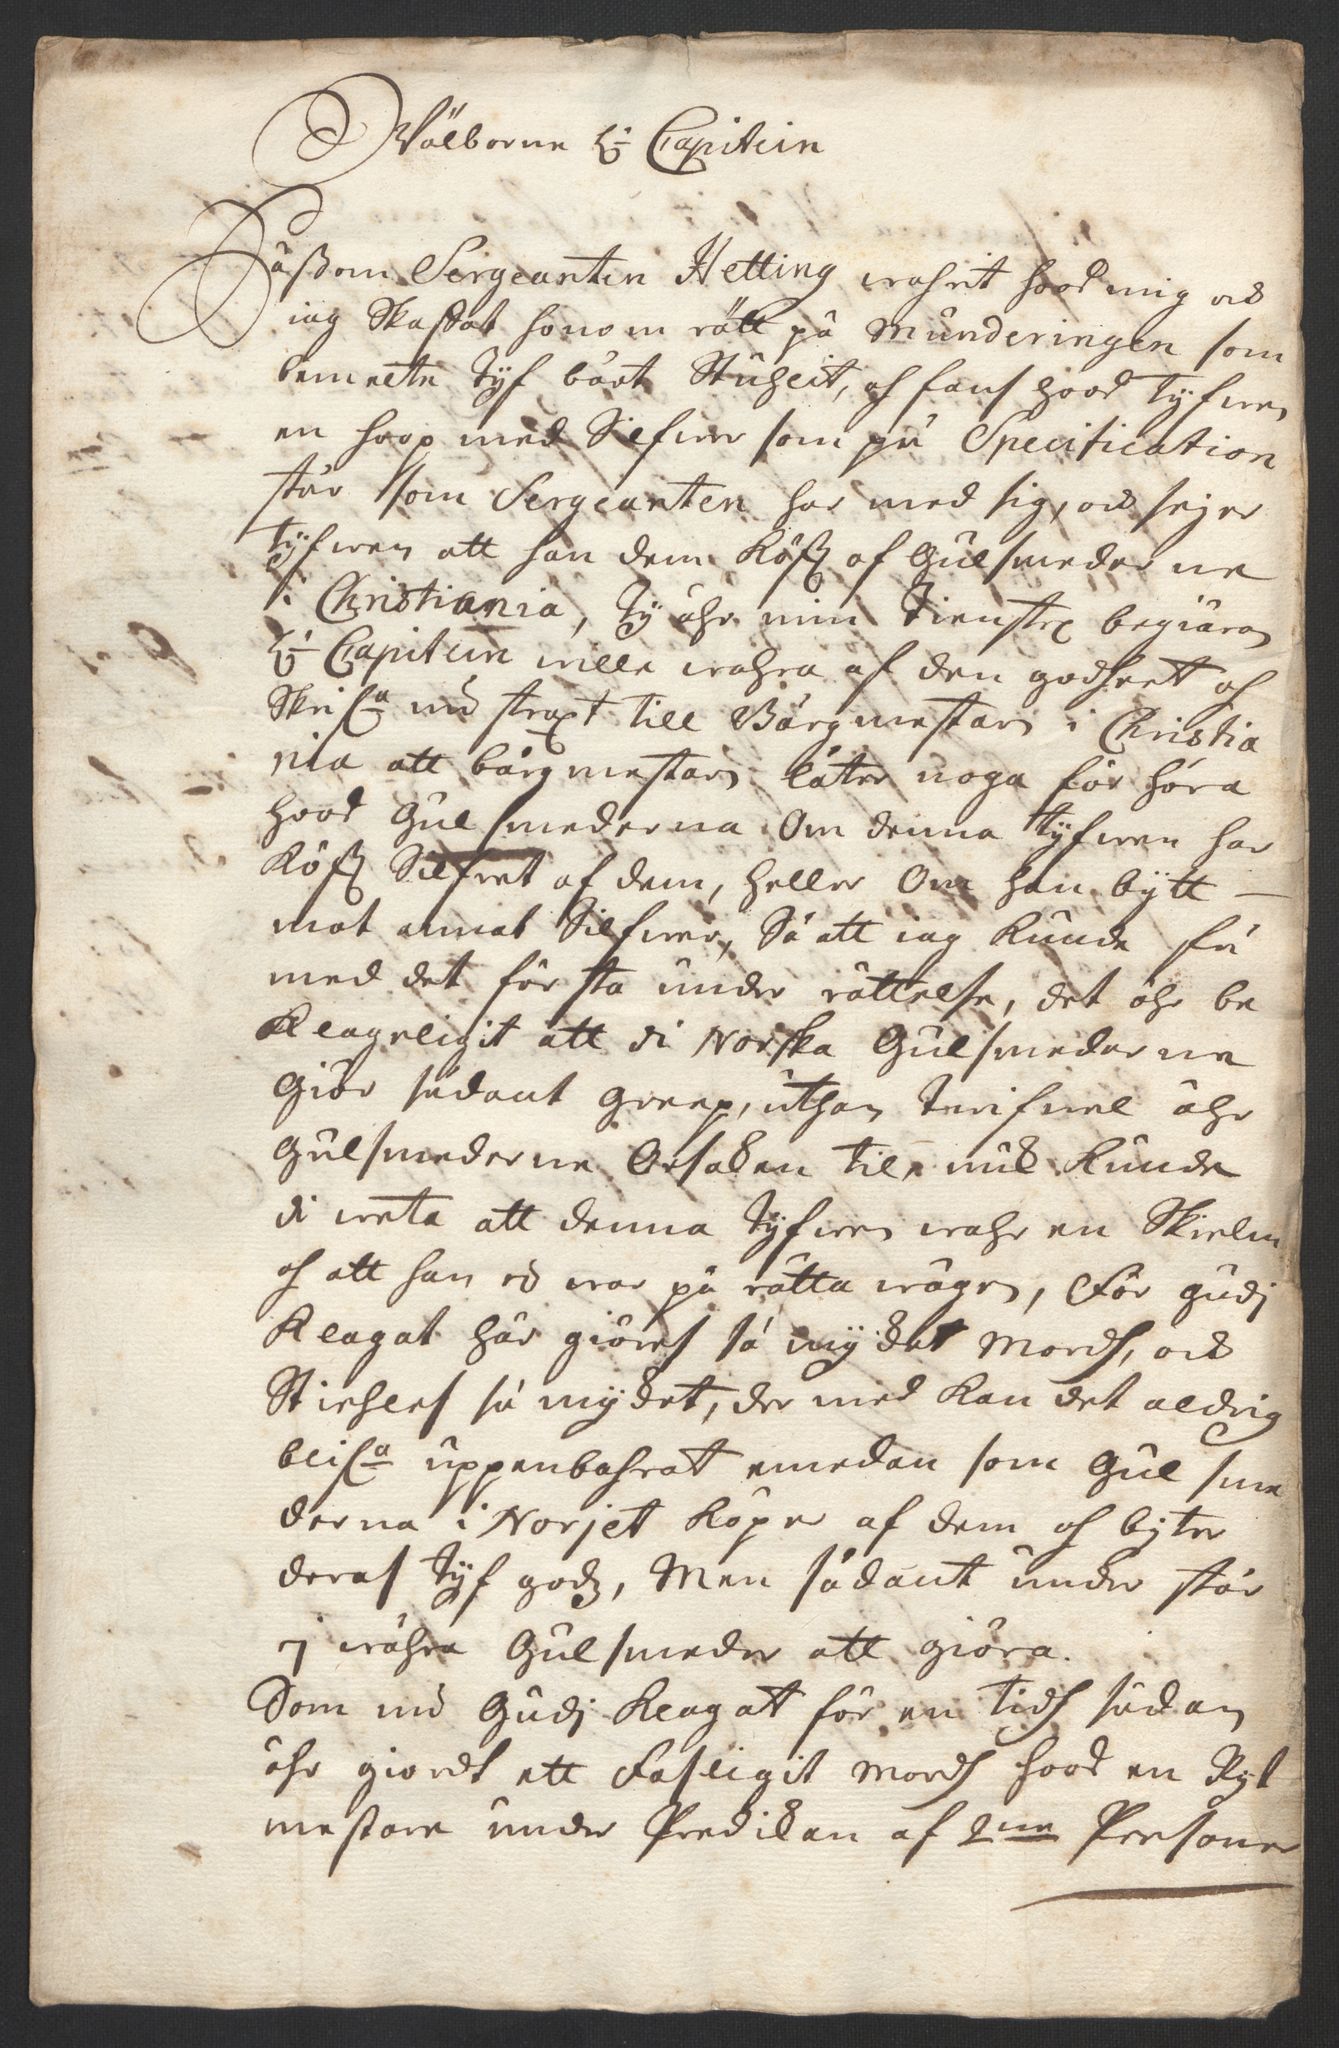 Wälborne Hr Capitein
Såßom Sergeanten Hetting wahrit hooß mig och
iag Skaffat honom rätt på Munderingen som
bemelte Tyf bårt Stuhlit, och fans hooß Tyfwen
en hoop med Silfwer som på Specification
står som Sergeanten har med sig, och sejer
tyfwen att han dem Köfft af Gulsmederne
i Christiania, Ty ähr min Tienstl begiäran
Hr Capitein wille wahra af den godheet och
Skrifa nu strax till Börgmestarn i Christia
nia att börgmestarn låter noga för höra
hooß Gulsmederna Om denna Tyfwen har
Köfft Silfwet af dem, heller Om han bytt
mot annat Silfwer, Så att iag Kunde få
med det första under rättelse, det ähr be
Klageligit att di Norska Gulsmederne
Giör sådant Greep, uthan Twifwel ähr
Gulsmederne Orsaken till, nuk Kunde
di weta att denna Tyfwen wahr en Skielm
och att han ei war på rätta wägen, För gudi
Klagat här giöres så mycket Mordh, och
Stiehles så mycket, der med Kan det aldrig
blifa uppenbahrat emedan som Gul sme
derna i Norjet Köper af dem och byter
deras Tyf godz, Men sådant under står
ej wåhra Gulsmeder att giöra.
Som nu Gudi Klagat för en tidh sådan
ähr giordt ett Fasligit Mordh hooß en Ryt
mestare under Predikan af 2ne Personer